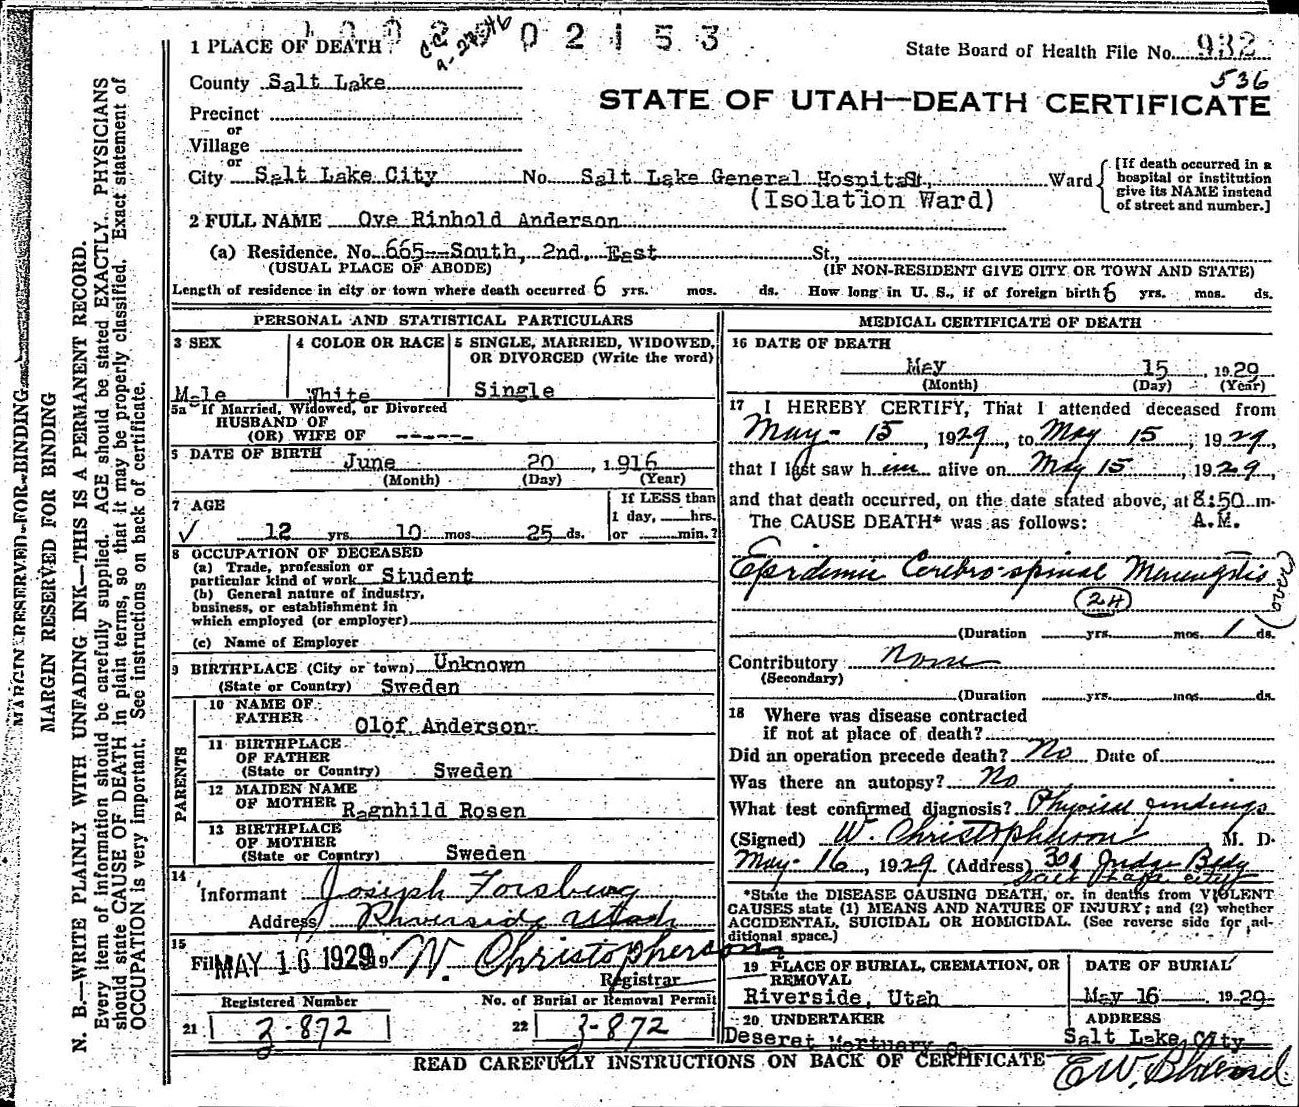 02153
1 PLACE OF DEATH
State Board of Health File No. 932
536
County Salt Lake
STATE OF UTAH—DEATH CERTIFICATE
Precinct
or
Village
or
City Salt Lake City No. Salt Lake General Hospital St., Ward
(Isolation Ward)
[If death occurred in a
hospital or institution
give its NAME instead
of street and number.]
2 FULL NAME Ove Rinhold Anderson
(a) Residence. No. 665--South, 2nd, East St.,
(USUAL PLACE OF ABODE) (IF NON-RESIDENT GIVE CITY OR TOWN AND STATE)
Length of residence in city or town where death occurred 6 yrs. mos. ds. How long in U. S., if of foreign birth 6 yrs. mos. ds.
PERSONAL AND STATISTICAL PARTICULARS
3 SEX 4 COLOR OR RACE 5 SINGLE, MARRIED, WIDOWED,
OR DIVORCED (Write the word)
Male White Single
5a If Married, Widowed, or Divorced
HUSBAND OF
(OR) WIFE OF ------
6 DATE OF BIRTH June 20, 1916
(Month) (Day) (Year)
7 AGE If LESS than
1 day, hrs.
✓ 12 yrs. 10 mos. 25 ds. or min.?
8 OCCUPATION OF DECEASED
(a) Trade, profession or
particular kind of work Student
(b) General nature of industry,
business, or establishment in
which employed (or employer)
(c) Name of Employer
9 BIRTHPLACE (City or town) Unknown
(State or Country) Sweden
PARENTS
10 NAME OF
FATHER Olof Anderson
11 BIRTHPLACE
OF FATHER
(State or Country) Sweden
12 MAIDEN NAME
OF MOTHER Ragnhild Rosen
13 BIRTHPLACE
OF MOTHER
(State or Country) Sweden
14
Informant Joseph Forsburg
Address Riverside Utah
15
Filed MAY 16 1929 19 W. Christopherson
Registrar
Registered Number No. of Burial or Removal Permit
21 3-872 22 3-872
MEDICAL CERTIFICATE OF DEATH
16 DATE OF DEATH
May 15, 1929
(Month) (Day) (Year)
17 I HEREBY CERTIFY, That I attended deceased from
May - 15, 1929, to May 15, 1929,
that I last saw him alive on May 15, 1929,
and that death occurred, on the date stated above, at 8:50 m.
The CAUSE DEATH* was as follows: A.M.
Epidemic Cerebro-spinal Meningitis
24
(Duration yrs. mos. 1 ds.
Contributory None
(Secondary)
(Duration yrs. mos. ds.
18 Where was disease contracted
if not at place of death?
Did an operation precede death? No Date of
Was there an autopsy? No
What test confirmed diagnosis? Physical findings
(Signed) W. Christopherson M. D.
May - 16, 1929 (Address) 301 Judge Bldg
Salt Lake City
*State the DISEASE CAUSING DEATH, or, in deaths from VIOLENT
CAUSES state (1) MEANS AND NATURE OF INJURY; and (2) whether
ACCIDENTAL, SUICIDAL OR HOMICIDAL. (See reverse side for ad-
ditional space.)
19 PLACE OF BURIAL, CREMATION, OR
REMOVAL
DATE OF BURIAL
Riverside, Utah May 16 1929
20 UNDERTAKER ADDRESS
Deseret Mortuary Co. Salt Lake City
READ CAREFULLY INSTRUCTIONS ON BACK OF CERTIFICATE
MARGIN RESERVED FOR BINDING
MARGIN RESERVED FOR BINDING
N. B.—WRITE PLAINLY WITH UNFADING INK—THIS IS A PERMANENT RECORD.
Every item of information should be carefully supplied. AGE should be stated EXACTLY. PHYSICIANS
should state CAUSE OF DEATH in plain terms, so that it may be properly classified. Exact statement of
OCCUPATION is very important. See instructions on back of certificate.